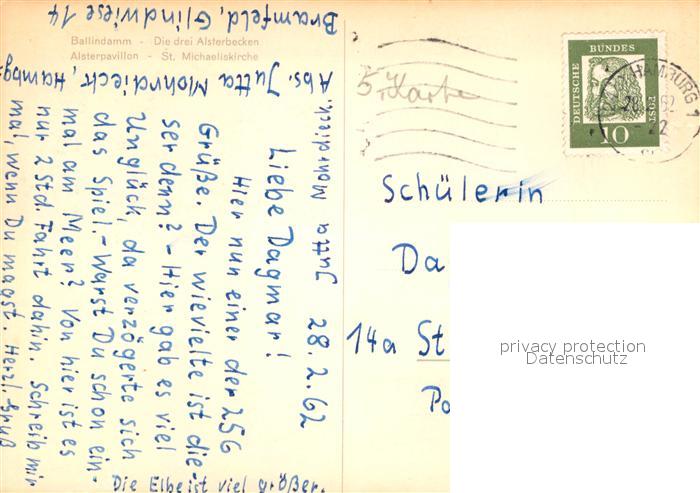 Bramfeld, Glindwiese 14
Ballindamm - Die drei Alsterbecken
Alsterpavillon - St. Michaeliskirche
Abs. Jutta Mohrdieck, Hambg.
28.2.62
Liebe Dagmar!
Hier nun einer der 256
Grüße. Der wievielte ist die-
ser denn? - Hier gab es viel
Unglück, da verzögerte sich
das Spiel. - Warst Du schon ein-
mal am Meer? Von hier ist es
nur 2 Std. Fahrt dahin. Schreib mir
mal, wenn Du magst. Herzl. Gruß
Jutta Mohrdieck.
Die Elbe ist viel größer.
5. Karte
DEUTSCHE
BUNDES
POST
10
HAMBURG 1
Schülerin
Da
14a St
Po
privacy protection
Datenschutz